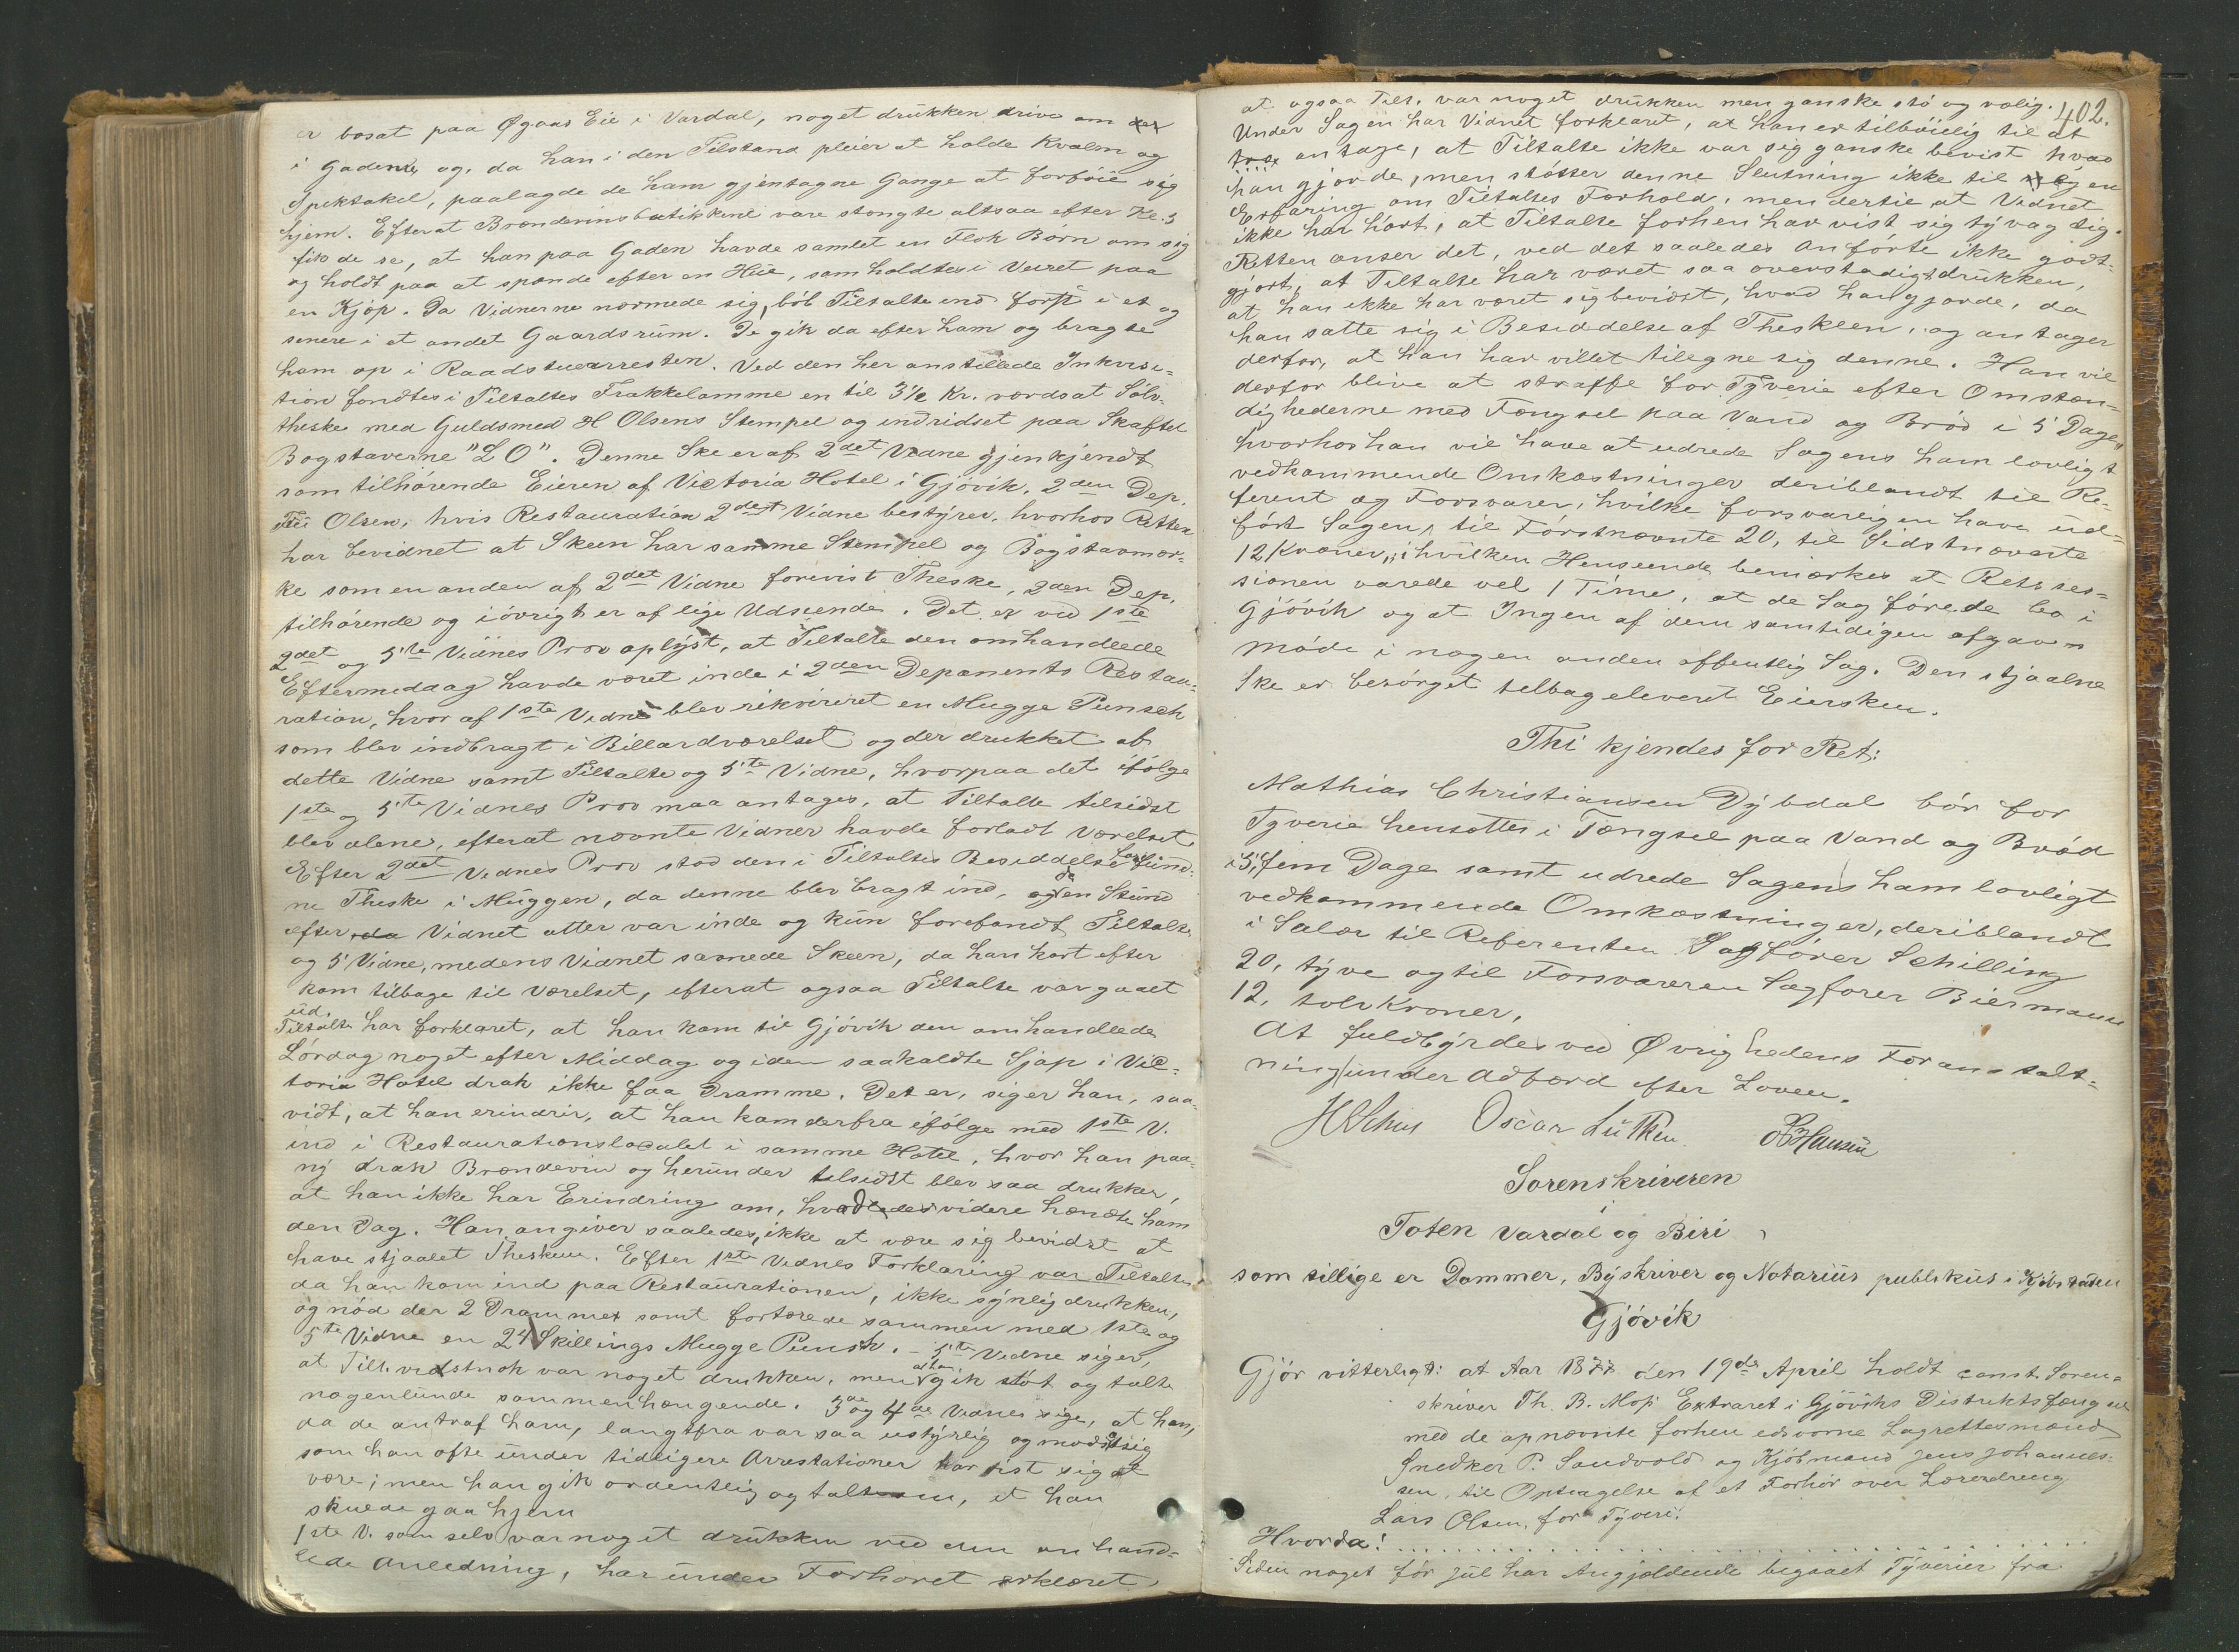 er bosat paa Øgaas Eie i Vardal, noget drukken drive om
i Gaderne og, da han i den Tilstand pleier at holde Kvalm og
Spektakel, paalagde de ham gjentagne Gange at forføie sig
hjem. Efterat Brændevinsbutikkene vare stængte altsaa efter Kl. 5
fik de se, at han paa Gaden havde samlet en Flok Børn om sig
og holdt paa at spænde efter en Hue, som holdtes i Veiret paa
en Kjæp. Da Vidnerne nærmede sig, løb Tiltalte ind først i et og
senere i et andet Gaardsrum. De gik da efter ham og bragte
ham op i Raadstuearresten. Ved den her anstillede Inkvisi-
tion fandtes i Tiltaltes Frakkelomme en til 3½ Kr. værdsat Sølv-
theske med Guldsmed H Olsens Stempel og indridset paa Skaftet
Bogstaverne "L O". Denne Ske er af 2det Vidne gjenkjendt
som tilhørende Eieren af Victoria Hotel i Gjøvik, 2den Dep.
Olsen, hvis Restauration 2det Vidne bestyrer, hvorhos Retten
har bevidnet at Skeen har samme Stempel og Bogstavmær-
ke som en anden af 2det Vidne forevist Theske, 2den Dep.
tilhørende og iøvrigt er af lige Udseende. Det er ved 1ste
2det og 5te Vidnes Prov oplyst, at Tiltalte den omhandlede
Eftermiddag havde været inde i 2den Deponents Restau-
ration, hvor af 1ste Vidne blev rekvireret en Mugge Punsch
som blev indbragt i Billardværelset og der drukket af
dette Vidne samt Tiltalte og 5te Vidne, hvorpaa det ifølge
1ste og 5te Vidnes Prov maa antages, at Tiltalte tilsidst
blev alene, efterat nævnte Vidner havde forladt Værelset
Efter 2det Vidnes Prov stod den i Tiltaltes Besiddelse befund-
ne Theske i Muggen, da denne blev bragt ind, og da en Stund
efter Vidnet atter var inde og kun forefandt Tiltalte
og 5 Vidne, medens Vidnet savnede Skeen, da han kort efter
kom tilbage til Værelset, efterat ogsaa Tiltalte var gaaet
ud.
Tiltalte har forklaret, at han kom til Gjøvik den omhandlede
Lørdag noget efter Middag og i den saakaldte Sjap i Vic-
toria Hotel drak ikke faa Dramme. Det er, siger han, saa-
vidt, at han erindrer, at han kom derfra ifølge med 1ste V.
ind i Restaurationslocalet i samme Hotel, hvor han paa-
ny drak Brændevin og herunder tilsidst blev saa drukken,
at han ikke har Erindring om, hvad videre hændte ham
den Dag. Han angiver saaledes, ikke at være sig bevidst at
have stjaalet Theskeen. Efter 1ste Vidnes Forklaring var Tiltalte
da han kom ind paa Restaurationen, ikke synlig drukken,
og nød der 2 Drammer samt fortærede sammen med 1ste og
5te Vidne en 24 Skillings Mugge Punsh. - 5te Vidne siger,
at Tilt. vidstnok var noget drukken, men at han gik støt og talte
nogenlunde sammenhængende. 3de og 4de Vidnes sige, at han,
da de antraf ham, langtfra var saa ustyrlig og modsatsig
som han ofte under tidligere Arrestationer har vist sig at
være; men han gik ordentlig og talte om, at han
skulde gaa hjem
1ste V. som selv var noget drukken ved den omhand-
lede Anledning, har under Forhøret erklæret
402.
at ogsaa Tilt. var noget drukken men ganske stø og rolig.
Under Sagen har Vidnet forklaret, at han er tilbøielig til at
antage, at Tiltalte ikke var sig ganske bevist hvad
han gjorde, men støtter denne Slutning ikke til egen
Erfaring om Tiltaltes Forhold, men dertil at Vidnet
ikke har hørt, at Tiltalte forhen har vist sig tyvagtig.
Retten anser det, ved det saaledes Anførte ikke godt-
gjort, at Tiltalte har været saa overstadigt drukken,
at han ikke har været sig bevidst, hvad han gjorde, da
han satte sig i Besiddelse af Theskeen, og antager
derfor, at han har villet tilegne sig denne. Han vil
derfor blive at straffe for Tyverie efter Omstæn-
dighederne med Fængsel paa Vand og Brød i 5 Dage,
hvorhos han vil have at udrede Sagens ham lovligt
vedkommende Omkostninger deriblandt til Re-
ferent og Forsvarer, hvilke forsvarligen have ud-
ført Sagen, til Førstnævnte 20, til Sidstnævnte
12 Kroner, i hvilken Henseende bemærkes at Retsses-
sionen varede vel 1 Time, at de Sagførere bo i
Gjøvik og at Ingen af dem samtidigen afgav
Møde i nogen anden offentlig Sag. Den stjaalne
Ske er besørget tilbageleveret Eiersken.
Thi kjendes for Ret:
Mathias Christiansen Dybdal bør for
Tyverie hensættes i Fængsel paa Vand og Brød
i 5, fem Dage samt udrede Sagens ham lovligt
vedkommende Omkostninger, deriblandt
i Salær til Referenten Sagfører Schilling
20, tyve og til Forsvareren Sagfører Biermann
12, tolv Kroner,
At fuldbyrdes ved Øvrighedens Foranstalt-
ning under Adfærd efter Loven.
Oscar Lütken Hansen
Sorenskriveren
i
Toten Vardal og Biri
som tillige er Dommer, Byskriver og Notarius publikus i Kjøbstaden
Gjøvik
Gjør vitterligt: at Aar 1877 den 19de April holdt const. Soren-
skriver Th. B. Moß Extraret i Gjøviks Distriktsfængsel
med de opnævnte forhen edsvorne Lagrettesmænd
Snedker P. Sandvold og Kjøbmand Jens Johannes-
sen, til Optagelse af et Forhør over Læredreng
Lars Olsen, for Tyveri.
Hvorda! . . . . . . . . . . . . . . . . . . . .
Siden noget før Jul har Angjældende begaaet Tyverier fra